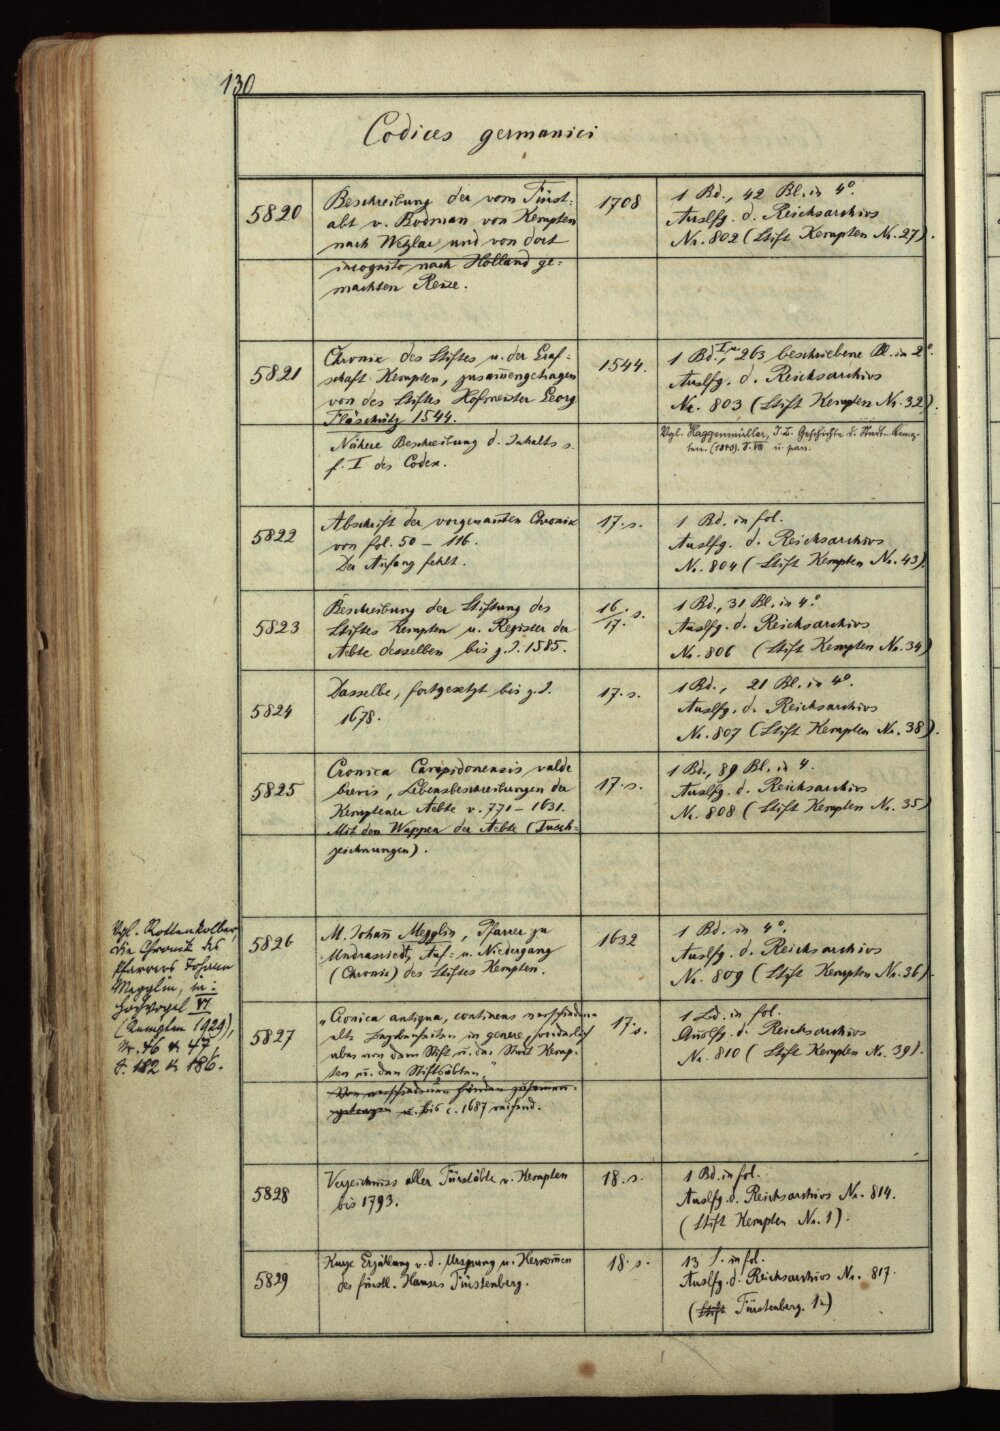 130
Codices germanici
5820
Beschreibung der vom Fürst-
abt v. Bodman von Kempten
nach Wetzlar und von dort
incognito nach Holland ge-
machten Reise.
1708
1 Bd., 42 Bl. in 4°.
Auslfg. d. Reichsarchivs
Nr. 802 (Stift Kempten Nr. 27).
5821
Chronik des Stiftes u. der Graf-
schaft Kempten, zusam̄engetragen
von des Stiftes Hofmeister Georg
Fläschütz 1544.
Nähere Beschreibung d. Inhalts s.
f. I des Codex.
1544.
1 Bd., I u. 263 beschriebene Bl. in 2°.
Auslfg. d. Reichsarchivs
Nr. 803 (Stift Kempten Nr. 32).
Vgl. Haggenmüller, Geschichte d. Stadt Kemp-
ten. (1840). S. VII u. pass.
5822
Abschrift der vorgenan̄ten Chronik
von fol. 50 – 116.
Der Anfang fehlt.
17. s.
1 Bd. in fol.
Auslfg. d. Reichsarchivs
Nr. 804 (Stift Kempten Nr. 43).
5823
Beschreibung der Stiftung des
Stiftes Kempten u. Register der
Aebte desselben bis z. J. 1585.
16./17. s.
1 Bd., 31 Bl. in 4°.
Auslfg. d. Reichsarchivs
Nr. 806 (Stift Kempten Nr. 34)
5824
Dasselbe, fortgesetzt bis z. J.
1678.
17. s.
1 Bd., 21 Bl. in 4°.
Auslfg. d. Reichsarchivs
Nr. 807 (Stift Kempten Nr. 38).
5825
Cronica Campidonensis valde
brevis, Lebensbeschreibungen der
Kemptener Aebte v. 771 – 1631.
Mit den Wappen der Aebte (Tusch-
zeichnungen).
17. s.
1 Bd., 89 Bl. in 4.
Auslfg. d. Reichsarchivs
Nr. 808 (Stift Kempten Nr. 35)
Vgl. Rottenkolber,
Die Chronik des
Pfarrers Johann
Megglin, in:
Hochvogel VI
(Kempten 1929),
Nr. 46 u. 47
S. 182 u. 186.
5826
M. Johan̄ Megglin, Pfarrer zu
Undrasried, Auf- u. Niedergang
(Chronik) des Stiftes Kempten.
1632
1 Bd. in 4°.
Auslfg. d. Reichsarchivs
Nr. 809 (Stift Kempten Nr. 36).
5827
"Cronica antiqua, continens verschiedene
alte Begebenheiten in genere, sonderlich
aber von dem Stift u. der Stadt Kemp-
ten u. den Stiftsäbten."
Von verschiedenen Händen zusammen-
getragen u. bis c. 1687 reichend.
17. s.
1 Bd. in fol.
Auslfg. d. Reichsarchivs
Nr. 810 (Stift Kempten Nr. 39).
5828
Verzeichniss aller Fürstäbte v. Kempten
bis 1793.
18. s.
1 Bd. in fol.
Auslfg. d. Reichsarchivs Nr. 814.
(Stift Kempten Nr. 1).
5829
Kurze Erzählung v. d. Ursprung u. Herkom̄en
des fürstl. Hauses Fürstenberg.
18. s.
13 S. in fol.
Auslfg. d. Reichsarchivs Nr. 817.
(Stift Fürstenberg. 1.)